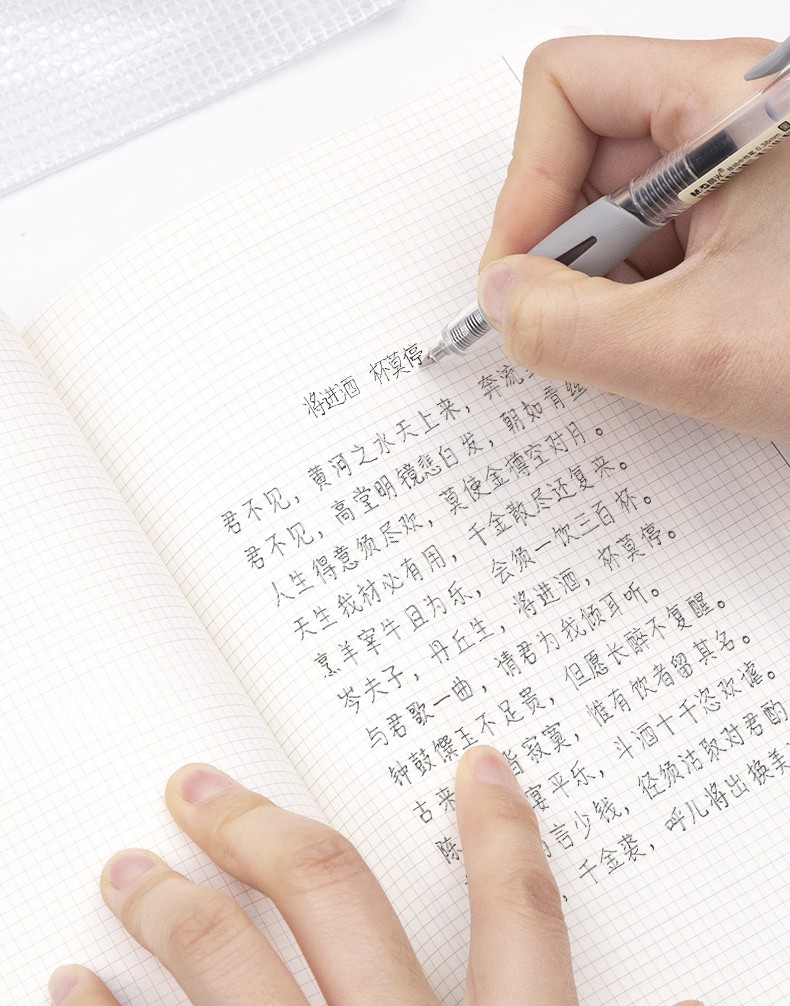 M&G晨光 0.38mm
将进酒 杯莫停
君不见，黄河之水天上来，奔流
君不见，高堂明镜悲白发，朝如青丝
人生得意须尽欢，莫使金樽空对月。
天生我材必有用，千金散尽还复来。
烹羊宰牛且为乐，会须一饮三百杯。
岑夫子，丹丘生，将进酒，杯莫停。
与君歌一曲，请君为我倾耳听。
钟鼓馔玉不足贵，但愿长醉不复醒。
古来 皆寂寞，惟有饮者留其名。
陈 宴平乐，斗酒十千恣欢谑。
言少钱，径须沽取对君酌
，千金裘，呼儿将出换美